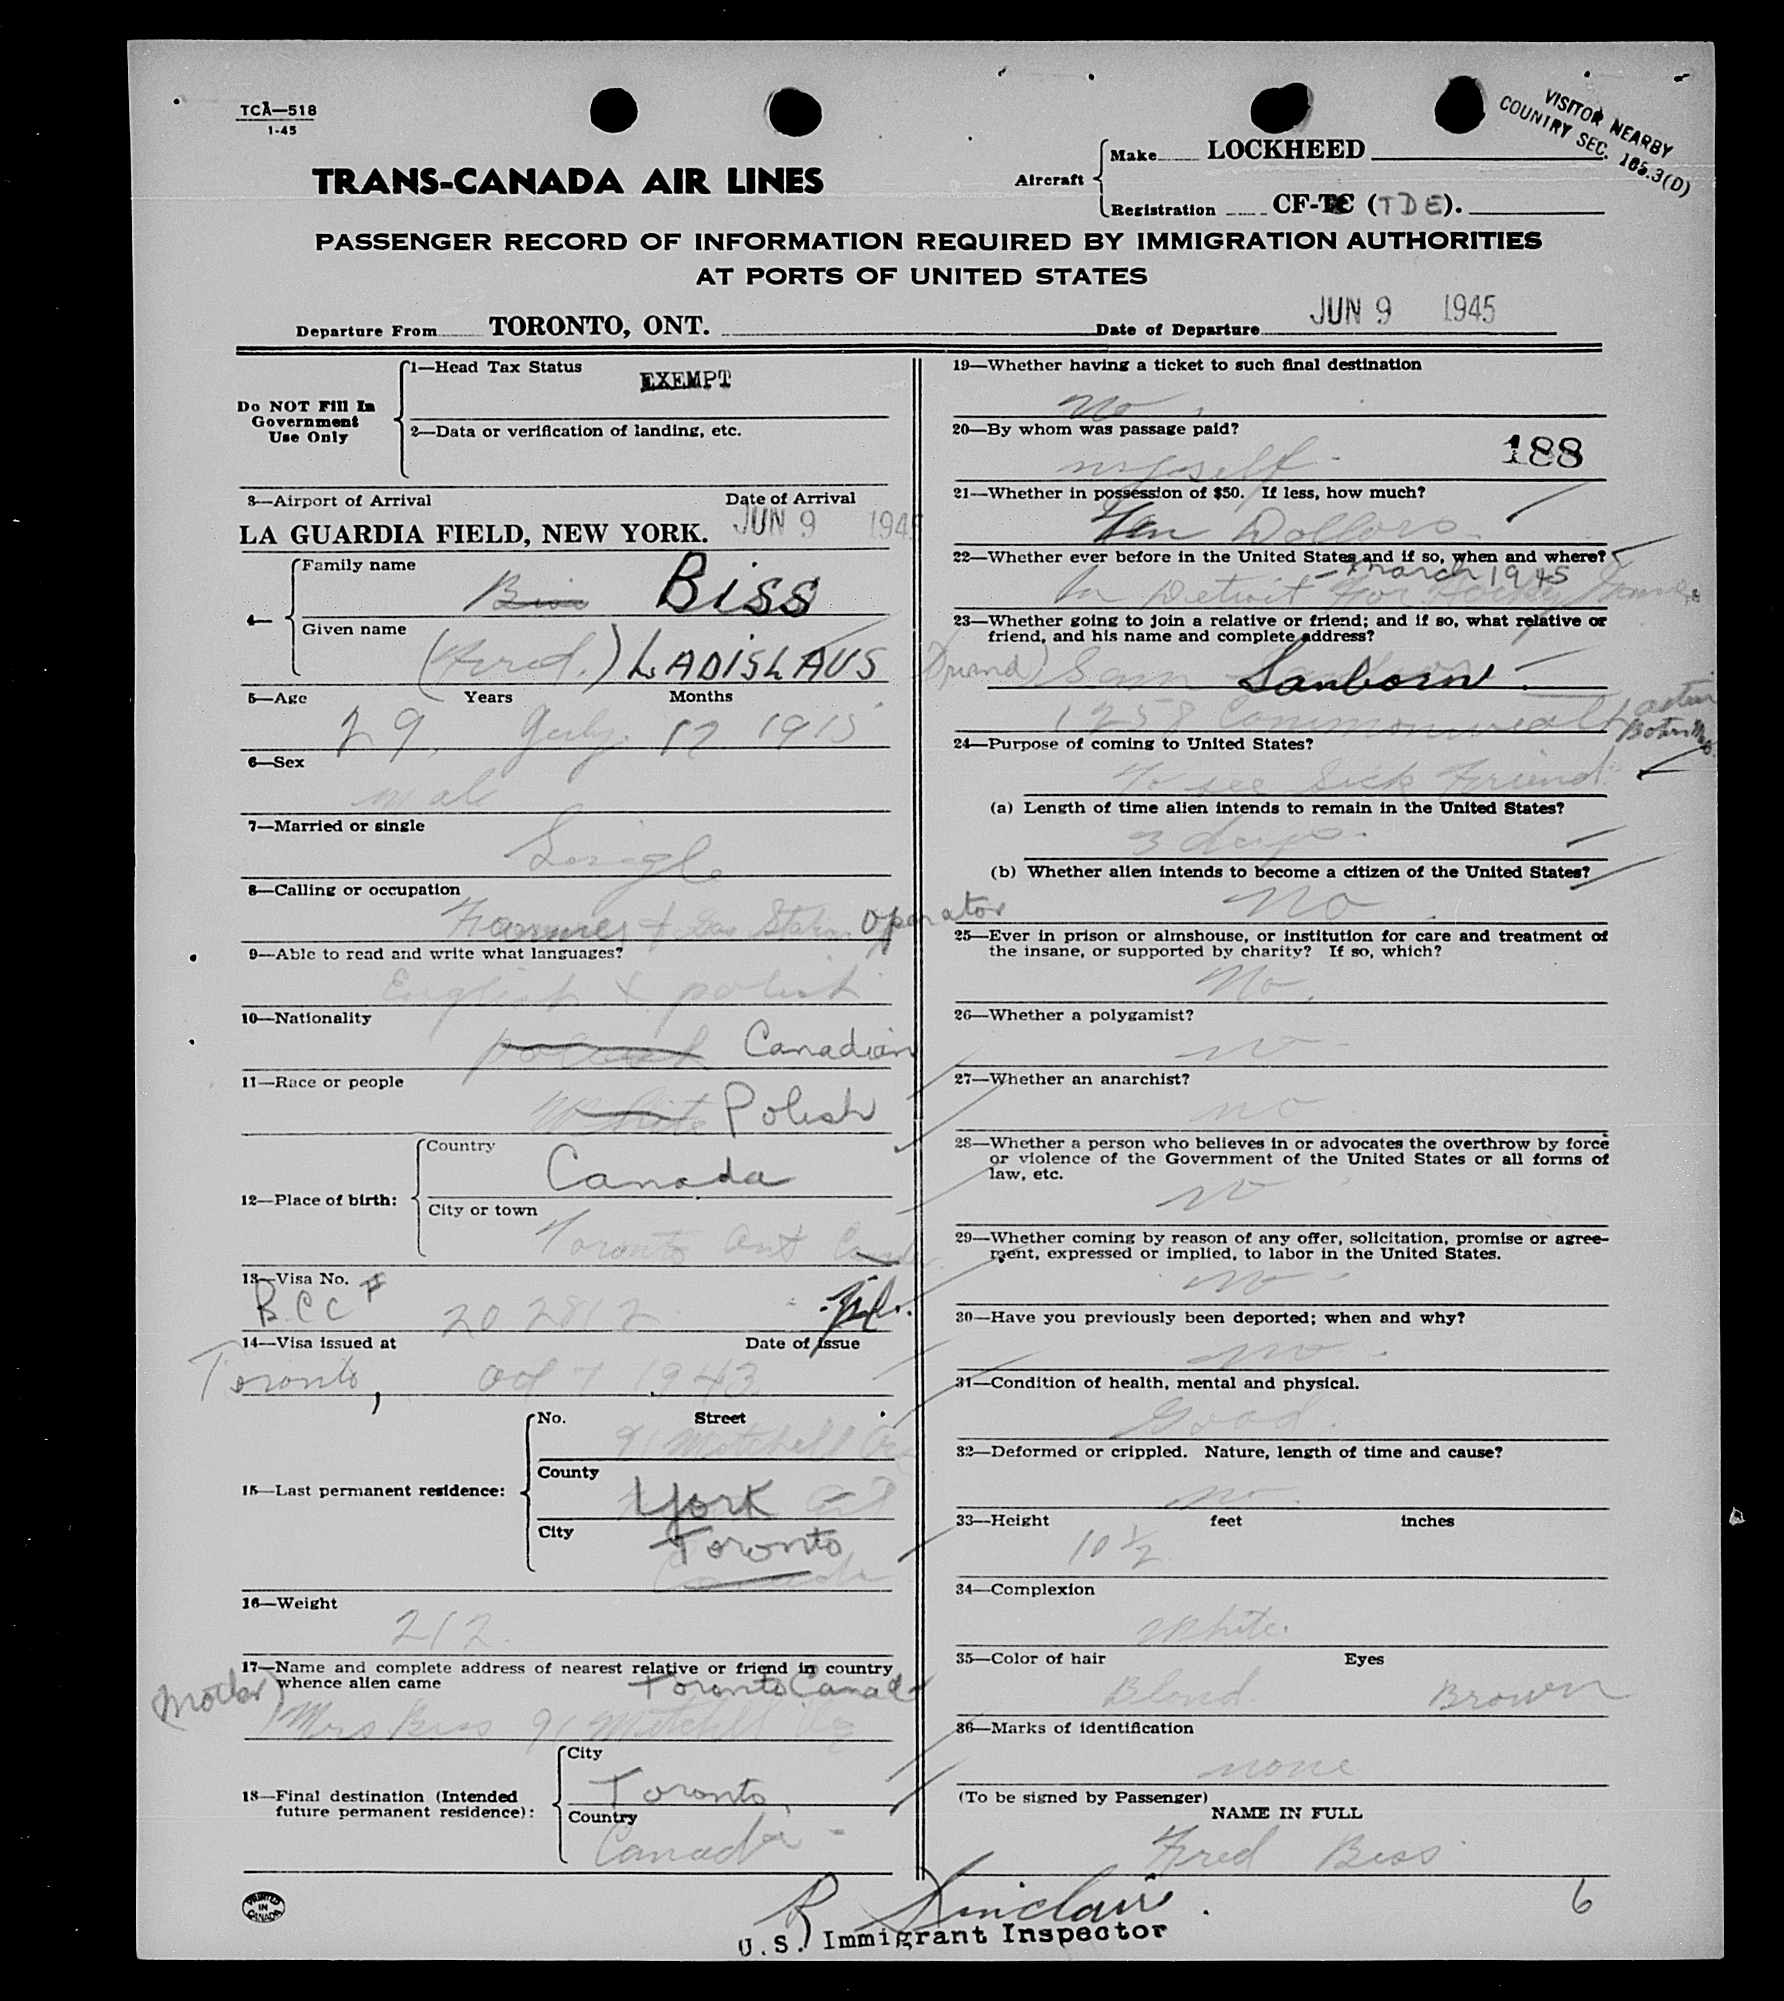 TCA—518
1-45
VISITOR NEARBY
COUNTRY SEC. 165.3(D)
TRANS-CANADA AIR LINES
Aircraft
Make LOCKHEED
Registration CF-TC (TDE).
PASSENGER RECORD OF INFORMATION REQUIRED BY IMMIGRATION AUTHORITIES
AT PORTS OF UNITED STATES
Departure From TORONTO, ONT. Date of Departure JUN 9 1945
Do NOT Fill In
Government
Use Only
1—Head Tax Status EXEMPT
2—Data or verification of landing, etc.
3—Airport of Arrival Date of Arrival
LA GUARDIA FIELD, NEW YORK. JUN 9 1945
4—
Family name
Biss
Given name
(Fred.) LADISLAUS
5—Age Years Months
29, July 17 1915
6—Sex
male
7—Married or single
Single
8—Calling or occupation
Farmer & Gas Station Operator
9—Able to read and write what languages?
English & polish
10—Nationality
polish Canadian
11—Race or people
White Polish
12—Place of birth:
Country
Canada
City or town
Toronto Ont
13—Visa No.
B.C.C # 202812
14—Visa issued at Date of issue
Toronto, Oct 7 1943
15—Last permanent residence:
No. Street
91 Mitchell Ave
County
York
City
Toronto
Canada
16—Weight
212.
17—Name and complete address of nearest relative or friend in country
whence alien came
Toronto Canada
(Mother) Mrs Biss 91 Mitchell Ave
18—Final destination (Intended
future permanent residence):
City
Toronto,
Country
Canada -
PRINTED
IN
CANADA
19—Whether having a ticket to such final destination
no
20—By whom was passage paid?
myself - 188
21—Whether in possession of $50. If less, how much?
Ten Dollars
22—Whether ever before in the United States and if so, when and where?
- March 1945
In Detroit For Hockey Games
23—Whether going to join a relative or friend; and if so, what relative or
friend, and his name and complete address?
Friend) Sam Sanborn -
1258 Commonwealth
Boston Mass.
24—Purpose of coming to United States?
To see Sick Friend
(a) Length of time alien intends to remain in the United States?
3 days.
(b) Whether alien intends to become a citizen of the United States?
No
25—Ever in prison or almshouse, or institution for care and treatment of
the insane, or supported by charity? If so, which?
No.
26—Whether a polygamist?
no -
27—Whether an anarchist?
no
28—Whether a person who believes in or advocates the overthrow by force
or violence of the Government of the United States or all forms of
law, etc.
no
29—Whether coming by reason of any offer, solicitation, promise or agree-
ment, expressed or implied, to labor in the United States.
no -
30—Have you previously been deported; when and why?
no -
31—Condition of health, mental and physical.
Good.
32—Deformed or crippled. Nature, length of time and cause?
no.
33—Height feet inches
10 1/2
34—Complexion
White.
35—Color of hair Eyes
Blond. Brown
36—Marks of identification
none
(To be signed by Passenger)
NAME IN FULL
Fred Biss
R Sinclair.
6
U.S. Immigrant Inspector